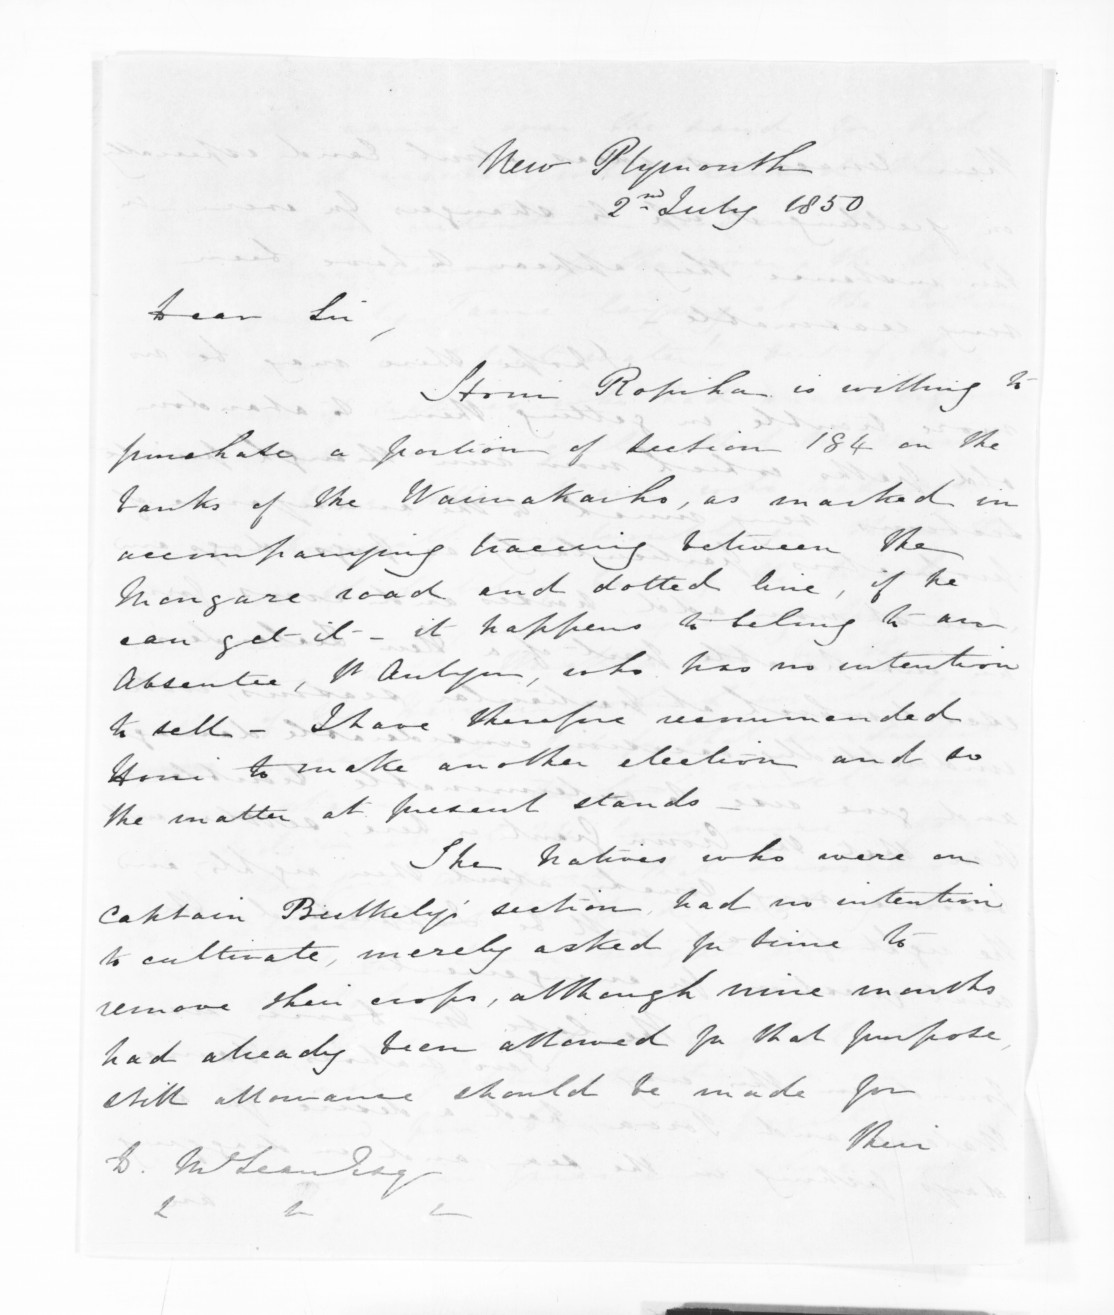 New Plymouth
2nd July 1850
Dear Sir,
Honi Ropiha is willing to
purchase a portion of section 184 on the
banks of the Waiwakaiho, as marked in
accompanying traceing between the
Mangare road and dotted line, if he
can get it - it happens to belong to an
Absentee, W Aubyn, who has no intention
to sell - I have therefore recommended
Honi to make another election and so
the matter at present stands -
The Natives who were on
Captain Bulkely's section, had no intention
to cultivate, merely asked for time to
remove their crops, although nine months
had already been allowed for that purpose,
still allowance should be made for
their
D. McLean Esq